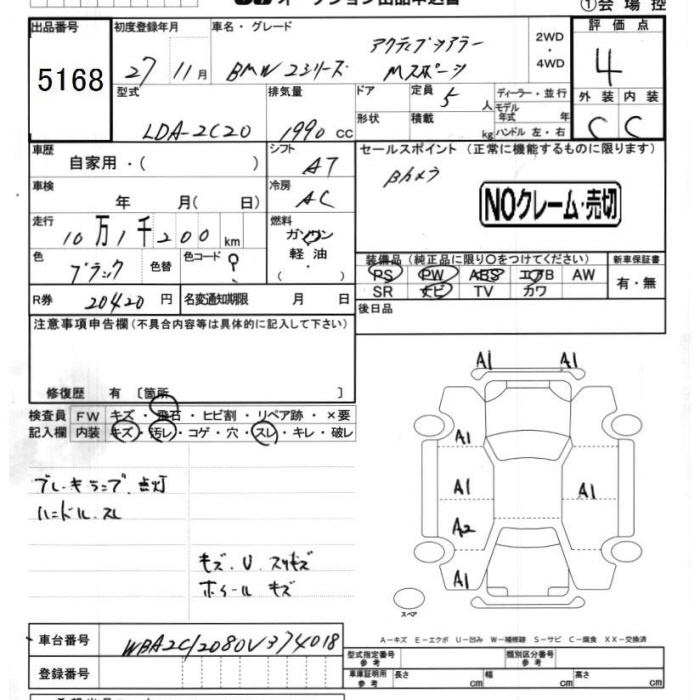 オークション出品申込書
①会場控
出品番号 初度登録年月 車名・グレード 評価点
5168 27 11月 BMW 2シリーズ アクティブツアラー Mスポーツ 2WD・4WD 4
型式 排気量 ドア 定員 5 人 ディーラー・並行 外装 内装
LDA-2C20 1990 cc 形状 積載 kg モデル年式 年 ハンドル 左・右 C C
車歴 シフト セールスポイント (正常に機能するものに限ります)
自家用・( ) AT
車検 冷房
年 月( 日) AC
NOクレーム・売切
走行 燃料
10万1千200km ガソリン
軽油
色 色替 色コード 装備品(純正品に限り○をつけてください) 新車保証書
ブラック PS PW ABS エアB AW 有・無
SR ナビ TV カワ
R券 20420円 名変通知期限 月 日 後日品
注意事項申告欄(不具合内容等は具体的に記入して下さい)
修復歴 有〔箇所 〕
検査員 FW キズ・飛石・ヒビ割・リペア跡・×要
記入欄 内装 キズ・汚レ・コゲ・穴・スレ・キレ・破レ
A1 A1
A1
A1 A1
A2
A1
ブレーキランプ.点灯
ハンドル.スレ
キズ.U.スリキズ
ホイール キズ
スペア
A-キズ E-エクボ U-凹み W-補修跡 S-サビ C-腐食 XX-交換済
車台番号 WBA2C12080V374018
型式指定番号 参考 類別区分番号 参考
登録番号 車庫証明用 参考 長さ cm 幅 cm 高さ cm